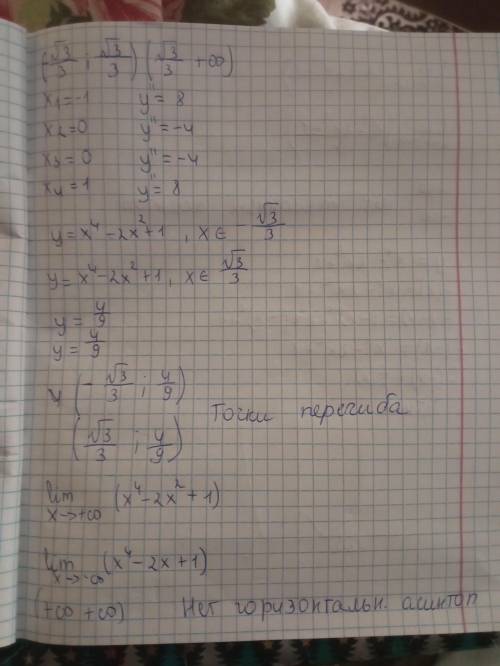 (√3/3 ; √3/3) (√3/3 +∞)
x1=-1 y''= 8
x2=0 y''=-4
x3=0 y''=-4
x4=1 y''= 8
y=x⁴-2x²+1 , x∈ -√3/3
y=x⁴-2x²+1, x∈ √3/3
y= 4/9
y= 4/9
y (-√3/3 ; 4/9)
Точки перегиба
(√3/3 ; 4/9)
lim x→+∞ (x⁴-2x²+1)
lim x→-∞ (x⁴-2x+1)
(+∞ +∞) Нет горизонтальн. асимтоп